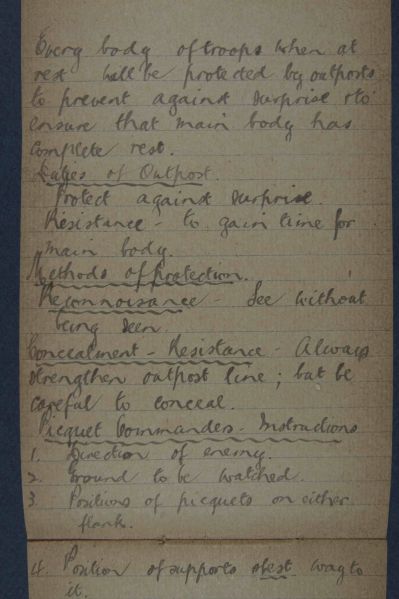 Every body of troops when at
rest will be protected by outposts
to prevent against surprise & to
ensure that main body has
complete rest.
Duties of Outpost.
Protect against surprise.
Resistance - to gain time for
main body.
Methods of protection.
Reconnoisance - See without
being seen.
Concealment - Resistance - Always
strengthen outpost line; but be
careful to conceal.
Picquet Commanders - Instructions
1. Direction of enemy.
2. Ground to be watched.
3. Positions of picquets on either
flank.
4. Position of supports & best way to
it.